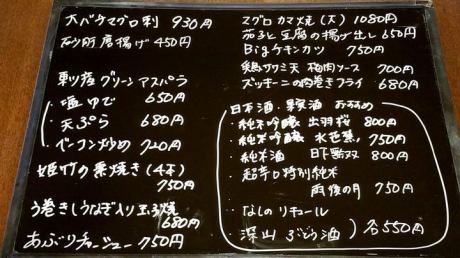 大バチマグロ刺 930円
砂肝唐揚げ 450円
東川産 グリーンアスパラ
・塩ゆで 650円
・天ぷら 680円
・ベーコン炒め 720円
姫竹の素焼き(4本)
750円
う巻き(うなぎ入り玉子焼
680円
あぶりチャーシュー 750円
マグロ カマ焼(大) 1080円
茄子と豆腐の揚げ出し 650円
Bigチキンカツ 750円
鶏ササミ天 梅肉ソース 700円
ズッキーニの肉巻きフライ 680円
日本酒・果実酒 おすすめ
・純米吟醸 出羽桜 800円
・純米吟醸 水芭蕉 750円
・純米酒 日下無双 800円
・超辛口特別純米
雨後の月 750円
・なしのリキュール
・深山 ぶどう酒 ) 各550円